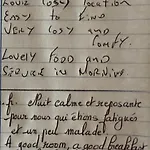 Easy to find
Very cosy and
comfy.
Lovely food and
Service in morning
Nuit calme et reposante
pour nous qui étions fatigués
et un peu malade.
A good room, a good breakfast